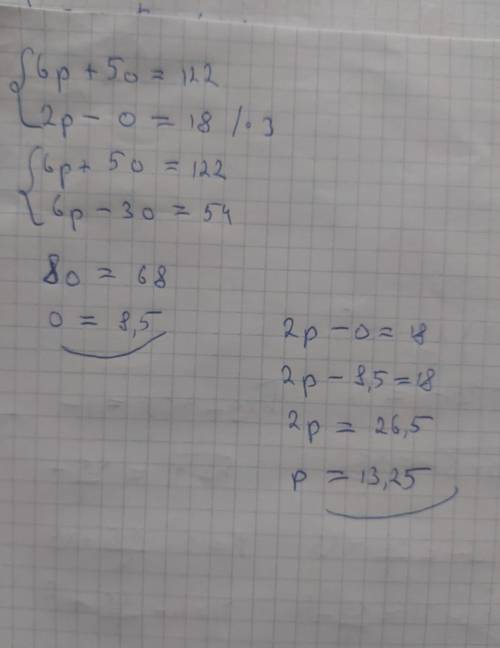 6p + 5o = 122
2p - o = 18 / · 3
6p + 5o = 122
6p - 3o = 54
8o = 68
o = 8,5
2p - o = 18
2p - 8,5 = 18
2p = 26,5
p = 13,25